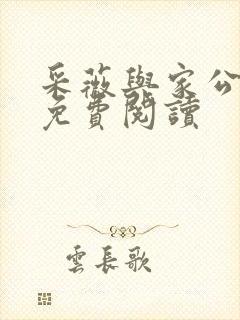 采薇與家公
免費閱讀
雲長歌